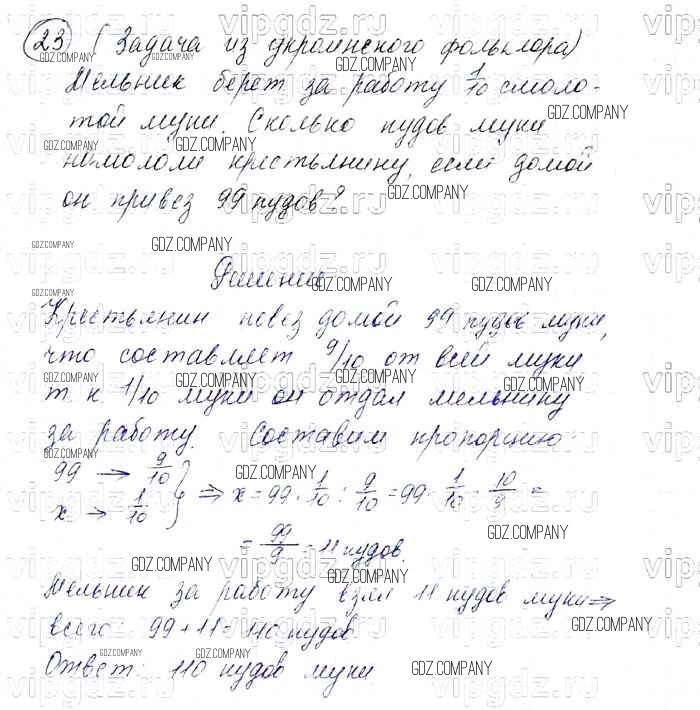 23 (Задача из украинского фольклора)
Мельник берет за работу 1/10 смоло-
той муки. Сколько пудов муки
намололи крестьянину, если домой
он привез 99 пудов?
Решение
Крестьянин повез домой 99 пудов муки,
что составляет 9/10 от всей муки
т к 1/10 муки он отдал мельнику
за работу. Составим пропорцию
99 → 9/10
x → 1/10 } ⇒ x = 99 · 1/10 : 9/10 = 99 · 1/10 · 10/9 =
= 99/9 = 11 пудов.
Мельник за работу взял 11 пудов муки ⇒
всего: 99 + 11 = 110 пудов
Ответ: 110 пудов муки
GDZ.COMPANY
vipgdz.ru